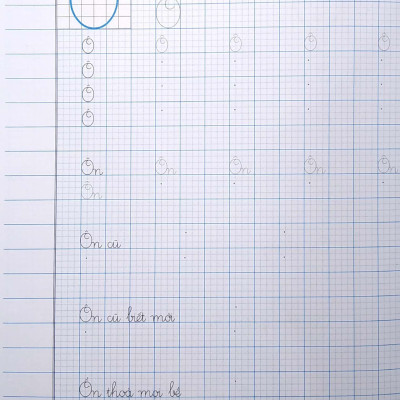 Ô
Ô Ô Ô Ô Ô
Ô
Ô
Ô
Ôn Ôn Ôn Ôn Ôn
Ôn
Ôn cũ
Ôn cũ biết mới
Ổn thoả mọi bề